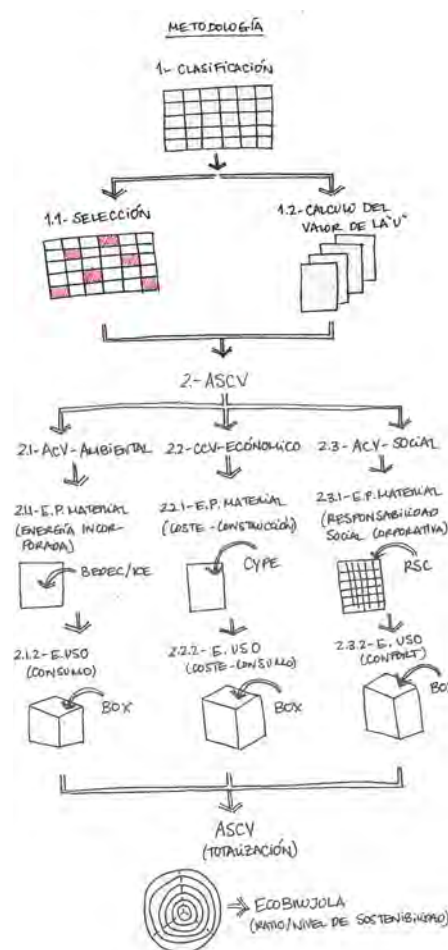 METODOLOGÍA
1.- CLASIFICACIÓN
1.1- SELECCIÓN
1.2- CALCULO DEL
VALOR DE LA "U"
2.- ASCV
2.1- ACV- AMBIENTAL
2.2- CCV- ECÓNOMICO
2.3- ACV- SOCIAL
2.1.1- E.P. MATERIAL
(ENERGÍA INCOR-
PORADA)
BEDEC/ICE
2.2.1- E.P. MATERIAL
(COSTE - CONSTRUCCIÓN)
CYPE
2.3.1- E.P. MATERIAL
(RESPONSABILIDAD
SOCIAL CORPORATIVA)
RSC
2.1.2- E. USO
(CONSUMO)
BOX
2.2.2- E. USO
(COSTE-CONSUMO)
BOX
2.3.2- E. USO
(CONFORT)
BO
ASCV
(TOTALIZACIÓN)
ECOBRUJULA
(RATIO/NIVEL DE SOSTENIBILIDAD)